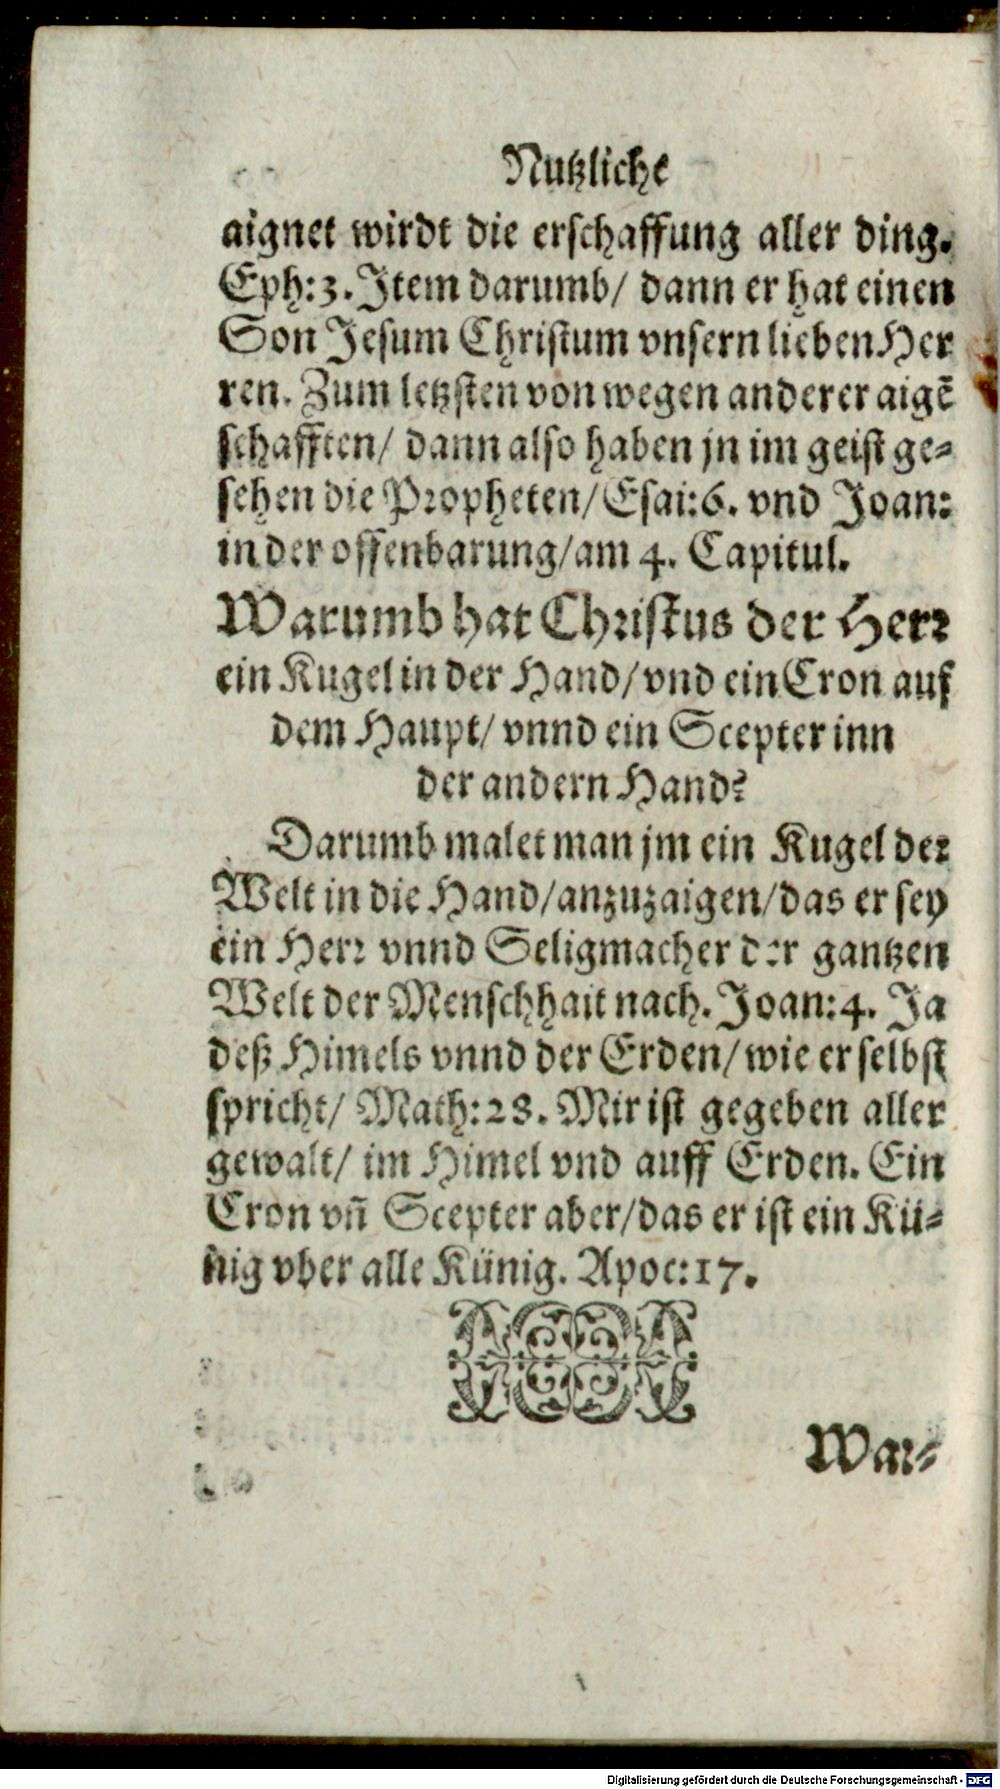 Nutzliche
aignet wirdt die erschaffung aller ding.
Eph:3. Item darumb/ dann er hat einen
Son Jesum Christum vnsern lieben Her
ren. Zum letzsten von wegen anderer aigē
schafften/ dann also haben jn im geist ge-
sehen die Propheten/ Esai:6. vnd Joan:
in der offenbarung/am 4. Capitul.
Warumb hat Christus der Herr
ein Kugel in der Hand/ vnd ein Cron auf
dem Haupt/ vnnd ein Scepter inn
der andern Hand?
Darumb malet man jm ein Kugel der
Welt in die Hand/anzuzaigen/das er sey
ein Herr vnnd Seligmacher der gantzen
Welt der Menschhait nach. Joan:4. Ja
deß Himels vnnd der Erden/ wie er selbst
spricht/ Math:28. Mir ist gegeben aller
gewalt/ im Himel vnd auff Erden. Ein
Cron vñ Scepter aber/das er ist ein Kü-
nig vber alle Künig. Apoc:17.
War-
Digitalisierung gefördert durch die Deutsche Forschungsgemeinschaft - DFG